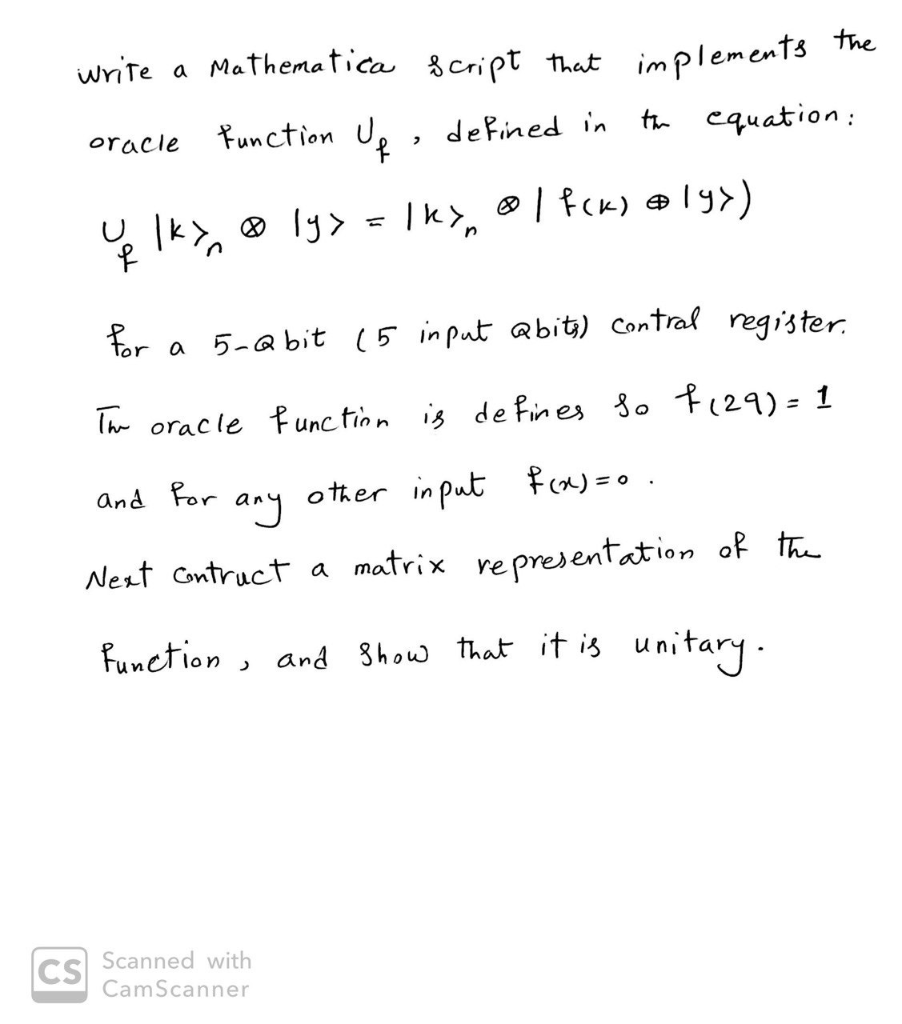 Write a Mathematica script that implements the
oracle function U_f , defined in th equation:
U_f |k>_n ⊗ |y> = |k>_n ⊗ | f(k) ⊕ |y>)
for a 5-Qbit (5 input Qbits) contral register.
Th oracle function is defines so f(29) = 1
and for any other input f(x) = 0 .
Next contruct a matrix representation of the
function , and show that it is unitary.
CS Scanned with
CamScanner